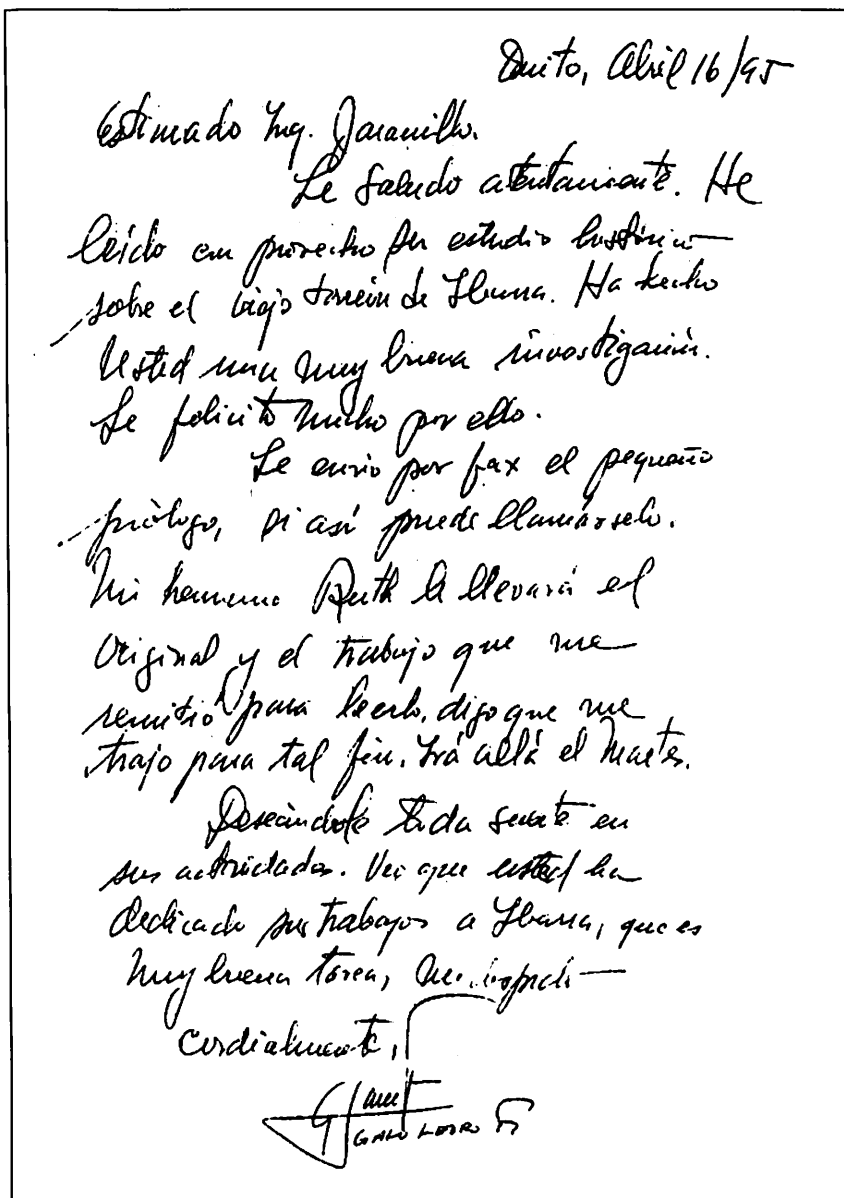 Quito, Abril 16/95
Estimado Ing. Jaramillo.
Le saludo atentamente. He
leído con provecho su estudio histórico
sobre el viejo torreón de Ibarra. Ha hecho
Usted una muy buena investigación.
Le felicito mucho por ello.
Le envio por fax el pequeño
prólogo, si así puede llamárselo.
Mi hermana Ruth le llevará el
Original y el trabajo que me
remitió para leerlo, digo que me
trajo para tal fin. Irá allá el Martes.
Deseándole toda suerte en
sus actividades. Veo que usted ha
dedicado sus trabajos a Ibarra, que es
muy buena tarea,
Cordialmente,
GALO